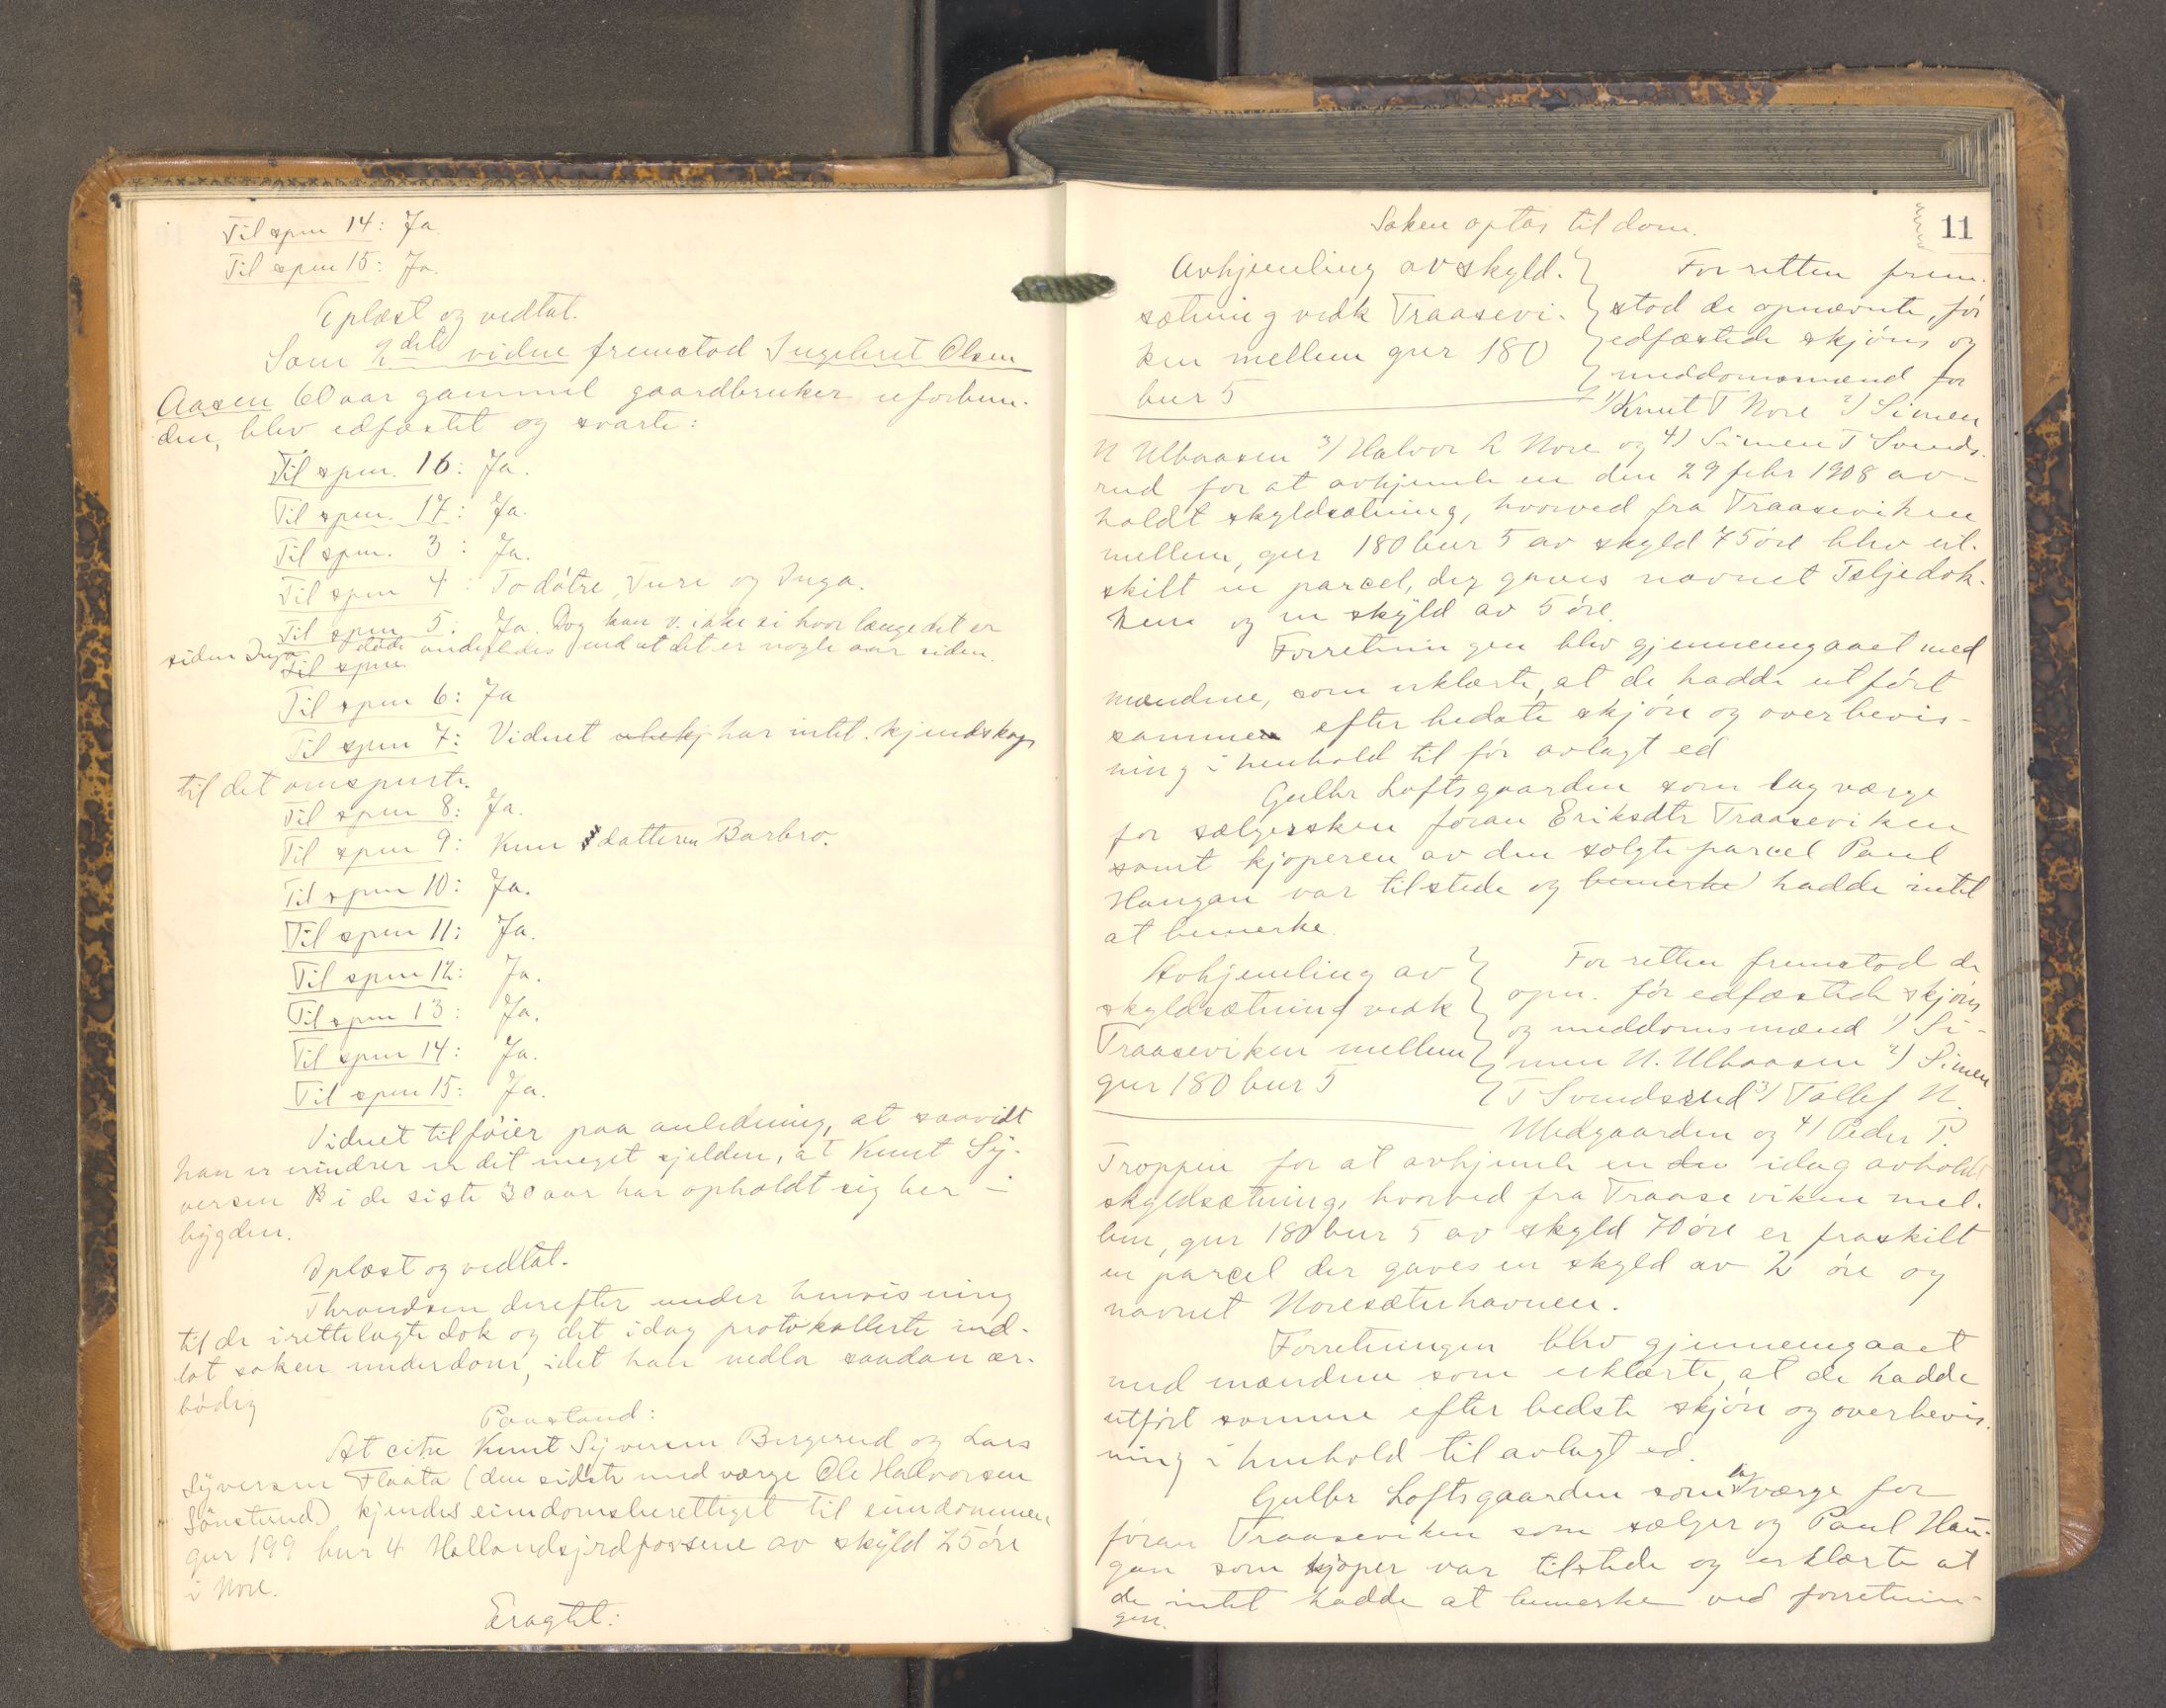 Til spm 14: Ja.
Til spm 15: Ja.
Oplæst og vedtat.
Som 2det vidne fremstod Ingebret Olsen
Aasen 60 aar gammel gaardbruker uforbun-
den, blev edfæstet og svarte:
Til spm. 16: Ja.
Til spm. 17: Ja.
Til spm. 3: Ja.
Til spm 4: To døtre, Ture og Inga.
Til spm 5: Ja. Dog kan v. ikke si hvor længe det er
siden Inga døde anderledes end at det er nogle aar siden.
Til spm
Til spm 6: Ja
Til spm 7: Vidnet har intet kjendskap
til det omspurte.
Til spm 8: Ja.
Til spm 9: Kun datteren Barbro.
Til spm 10: Ja.
Til spm 11: Ja.
Til spm 12: Ja.
Til spm 13: Ja.
Til spm 14: Ja.
Til spm 15: Ja.
Vidnet tilføier paa anledning, at saavidt
han erindrer er det meget sjelden, at Knut Sy-
versen B i de siste 30 aar har opholdt sig her i
bygden.
Oplæst og vedtat.
Throndsen derefter under henvisning
til de irettelagte dok og det idag protokollerte ind-
lot saken under dom, idet han nedla saadan ær-
bødig
Paastand:
At citr Knut Syversen Bergerud og Lars
Syversen Flaata (den sidste med værge Ole Halvorsen
Sønstrud) kjendes eiendomsberettiget til eiendommen
gnr 199 bnr 4 Hallandsjordfossene av skyld 25 øre
i Nore.
Eragtet:
11
Saken optas til dom.
Avhjemling av skyld-
sætning vedk Traasevi-
ken mellem gnr 180
bnr 5
For retten frem-
stod de opnævnte, før
edfæstede skjøns og
meddomsmænd for
1) Knut T Nore 2) Simen
N Ulbaasen 3) Halvor H Nore og 4) Simen T Svends-
rud for at avhjemle en den 29 febr 1908 av-
holdt skyldsætning, hvorved fra Traaseviken
mellem, gnr 180 bnr 5 av skyld 75 øre blev ut-
skilt en parcel, der gaves navnet Teljedok-
ken og en skyld av 5 øre.
Forretningen blev gjennemgaaet med
mændene, som erklærte, at de hadde utført
sammen efter bedste skjøn og overbevis-
ning i henhold til før avlagt ed
Gulbr Loftsgaarden som lagværge
for sælgersken Jøran Eriksdtr Traaseviken
samt kjøperen av den solgte parcel Paul
Haugan var tilstede og bemerke) hadde intet
at bemerke.
Avhjemling av
skyldsætning vedk
Traaseviken mellem
gnr 180 bnr 5
For retten fremstod de
opn. før edfæstede skjøns
og meddomsmænd 1) Si-
men N. Ulbaasen 2) Simen
T Svendsrud 3) Tollef N.
Medgaarden og 4) Peder P.
Troppen for at avhjemle en den idag avholdt
skyldsætning, hvorved fra Traaseviken mel-
lem, gnr 180 bnr 5 av skyld 70 øre er fraskilt
en parcel der gaves en skyld av 2 øre og
navnet Noresæterhavnen.
Forretningen blev gjennemgaaet
med mændene som erklærte, at de hadde
utført samme efter bedste skjøn og overbevis-
ning i henhold til avlagt ed.
Gulbr Loftsgaarden som lagværge for
Jøran Traaseviken som sælger og Paul Hau-
gan som kjøper var tilstede og erklærte at
de intet hadde at bemerke ved forretnin-
gen.